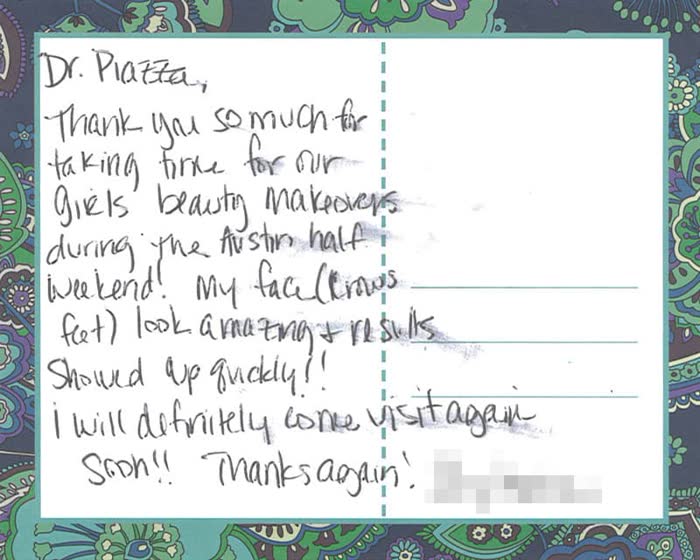 Dr. Piazza,
Thank you so much for
taking time for our
girls beauty makeovers
during the Austin half
weekend! My face (crows
feet) look amazing + results
showed up quickly!!
i will definitely come visit again
soon!! Thanks again!